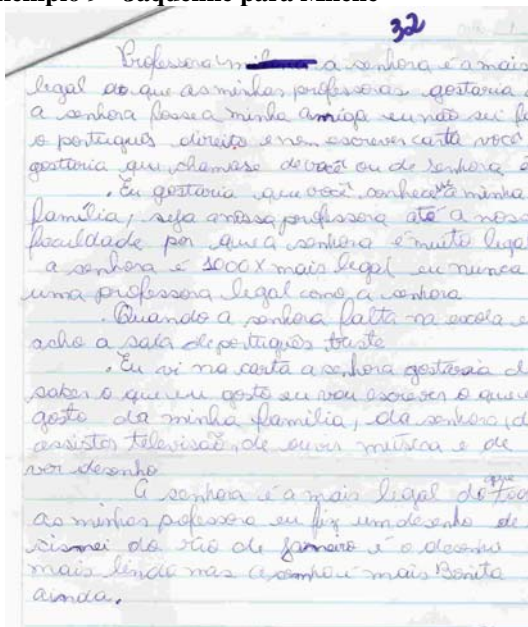 32
Professora a senhora é a mais
legal do que as minhas professoras gostaria
a senhora fosse a minha amiga eu não sei
o português direito e nem escrever carta você
gostaria que chamase de você ou de senhora
. Eu gostaria que você conhece se a minha
família, seja a nossa professora até a
faculdade por que a senhora é muito legal
a senhora é 1000x mais legal eu nunca
uma professora legal como a senhora
. Quando a senhora falta na escola
acho a sala de portiguês triste
. Eu vi na carta a senhora gostaria
saber o que eu gosto eu vou escrever o que
gosto da minha família, da senhora,
assistor televisão, de ouvir música e de
ver desenho
A senhora é a mais legal do que
as minhas pofessora eu fiz um desenho
do rio de janeiro é o desenho
mais lindo mas a senhora é mais Bonita
ainda.